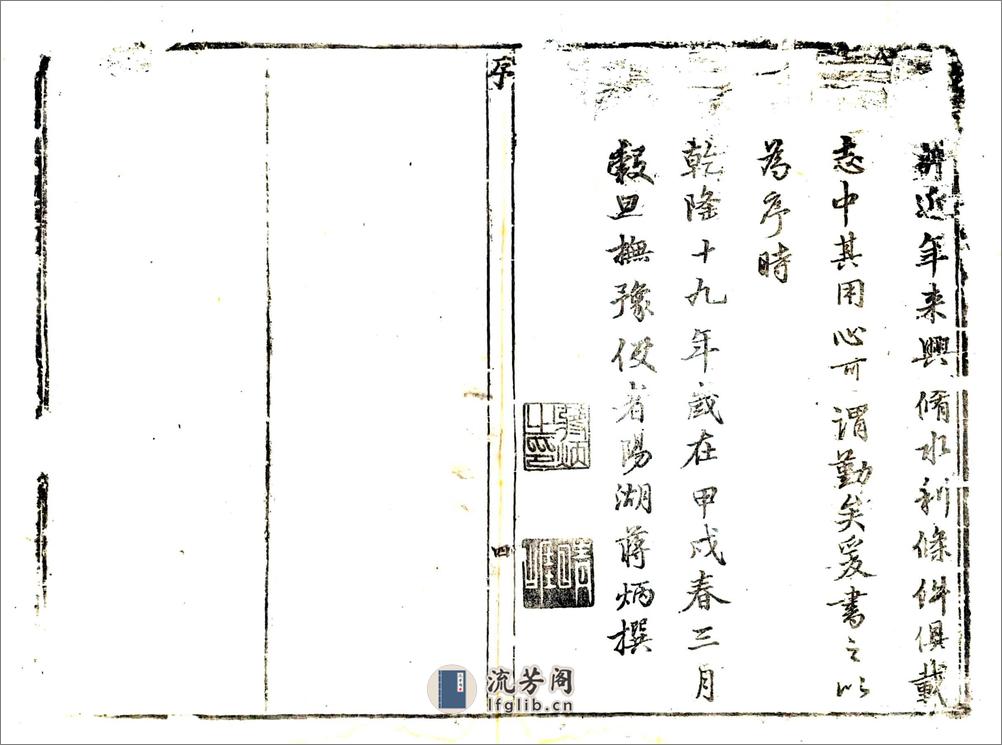 近年来興脩水利條件俱載
志中其用心可謂勤矣爰書之以
為序時
乾隆十九年歲在甲戌春三月
穀旦撫豫使者陽湖蔣炳撰
蔣炳之印
序
四
流芳阁
lfglib.cn